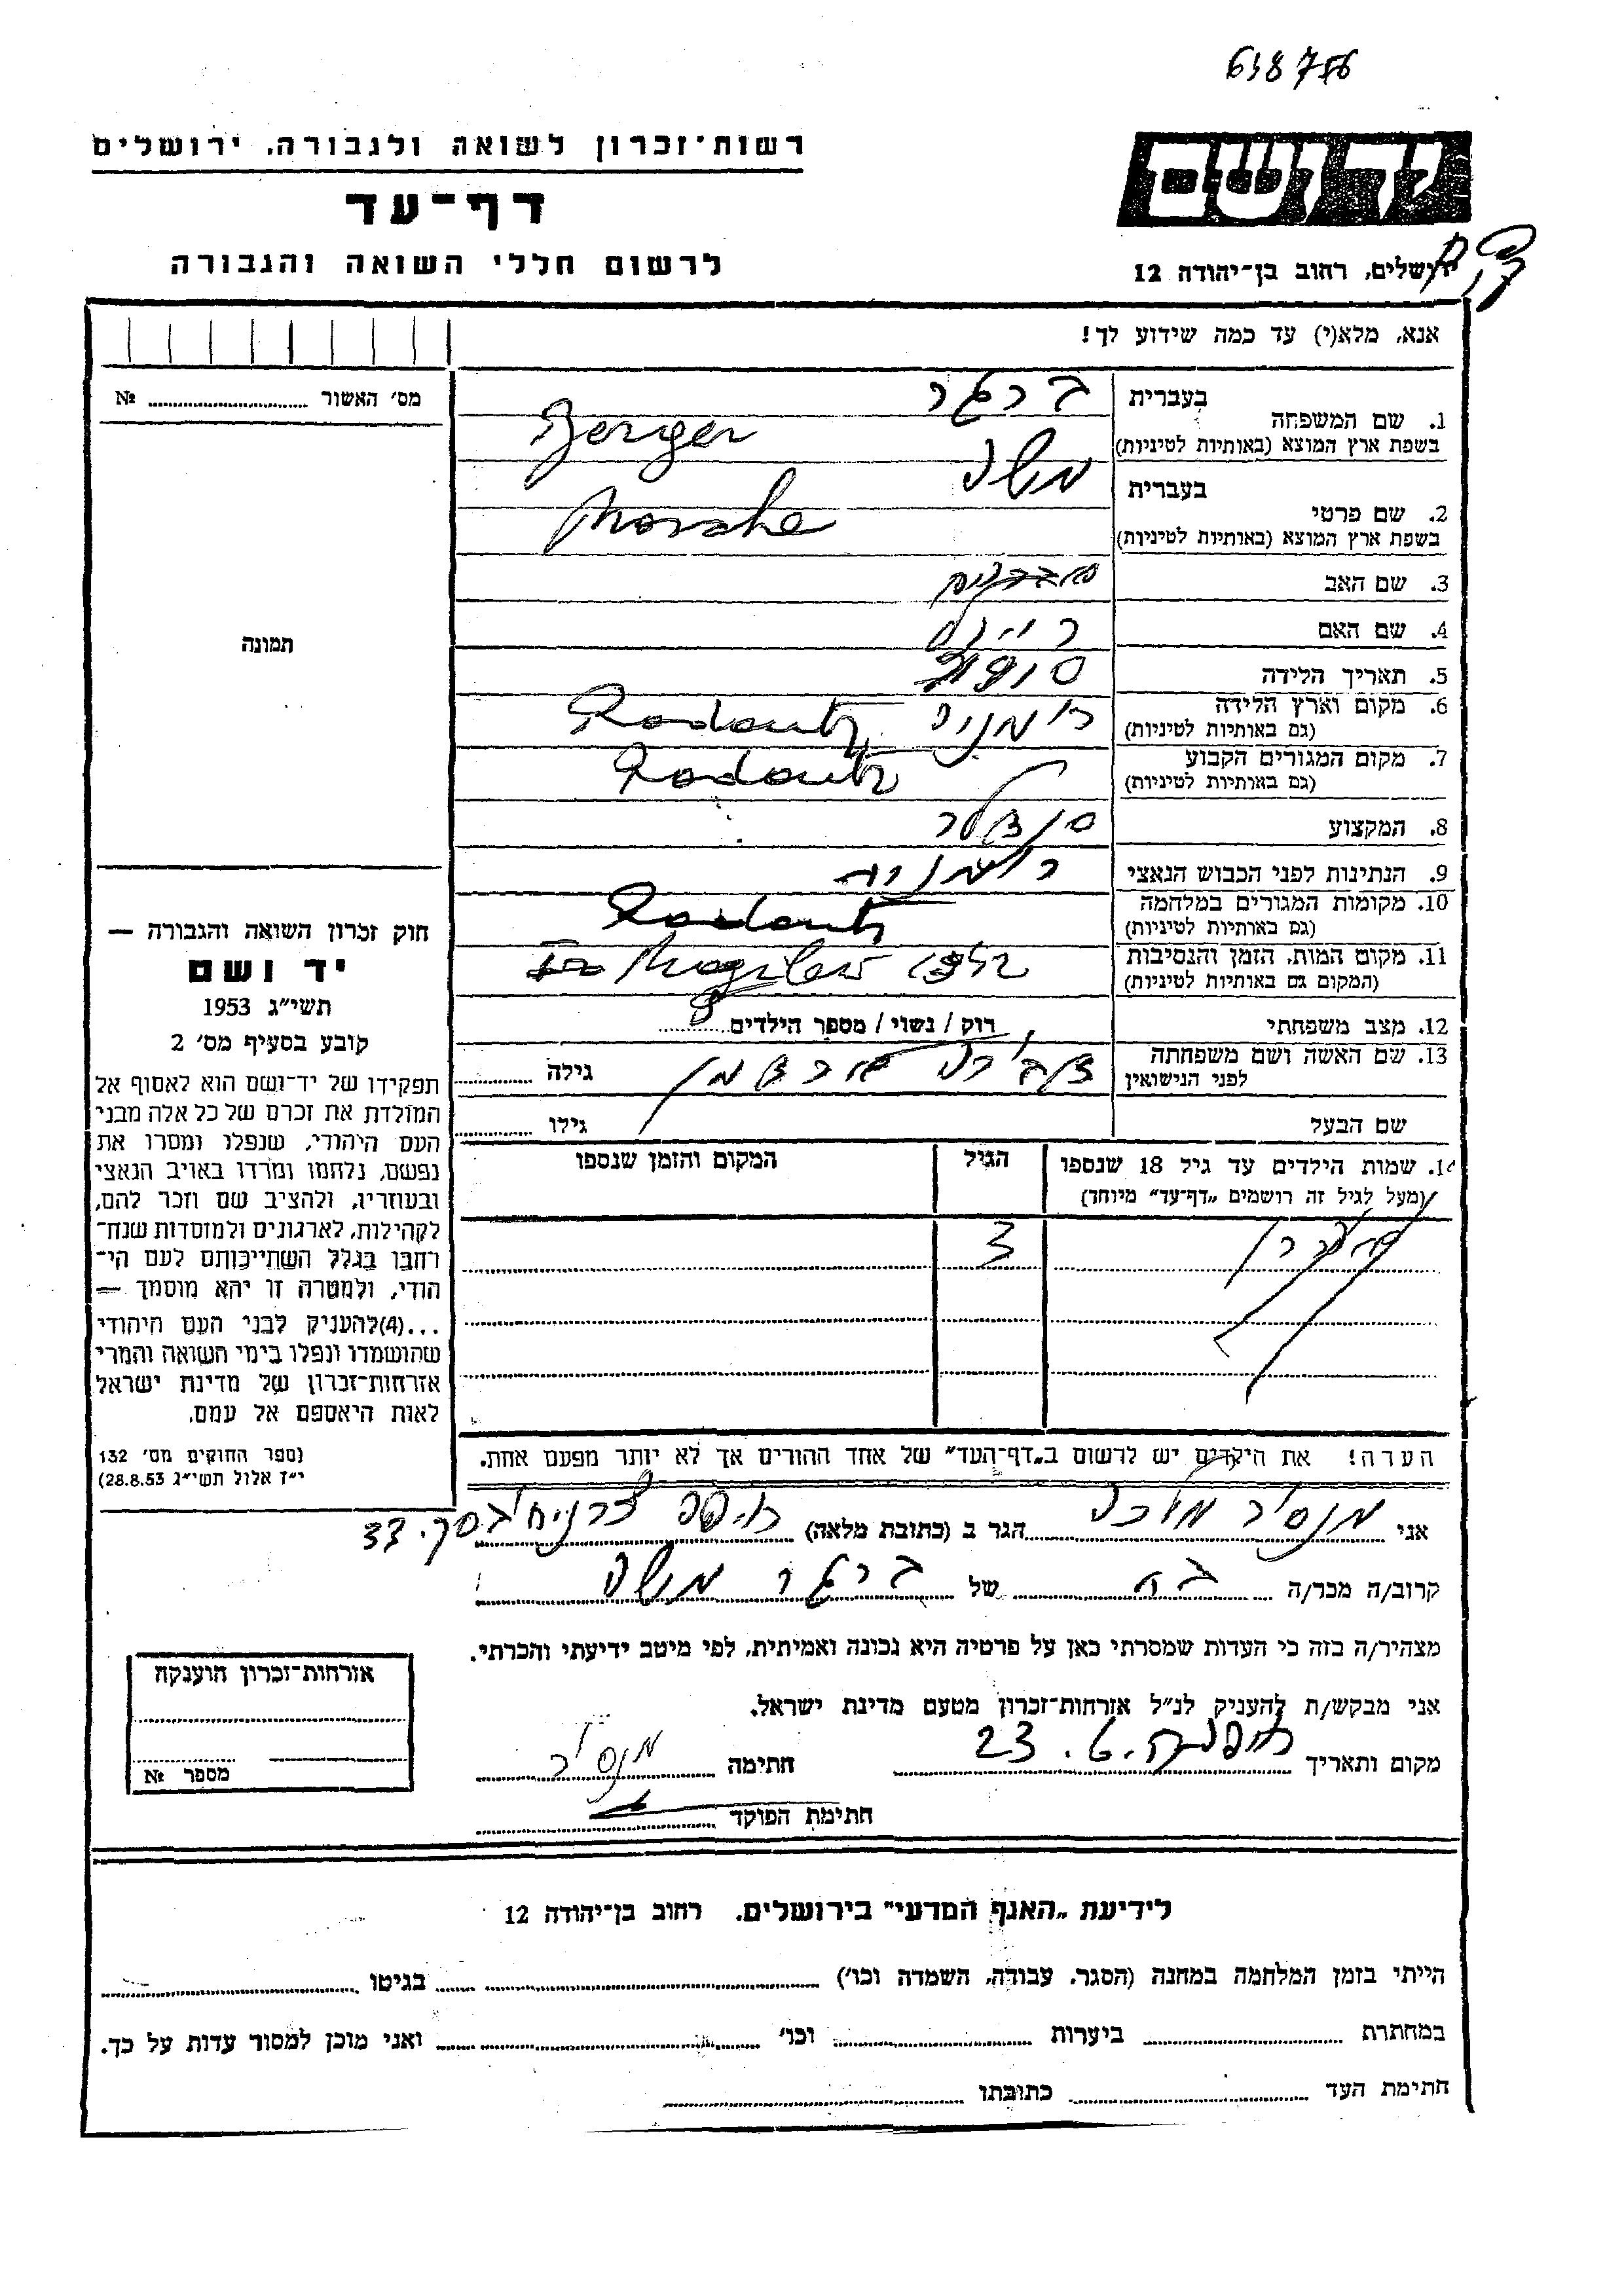 638756
רשות־זכרון לשואה ולגבורה, ירושלים
דף־עד
לרשום חללי השואה והגבורה
יד ושם
ירושלים, רחוב בן־יהודה 12
אנא, מלא(י) עד כמה שידוע לך!
מס׳ האשור № 
תמונה
חוק זכרון השואה והגבורה —
יד ושם
תשי״ג 1953
קובע בסעיף מס׳ 2
תפקידו של יד־ושם הוא לאסוף אל
המולדת את זכרם של כל אלה מבני
העם היהודי, שנפלו ומסרו את
נפשם, נלחמו ומרדו באויב הנאצי
ובעוזריו, ולהציב שם וזכר להם,
לקהילות, לארגונים ולמוסדות שנח־
רחבו בגלל השתייכותם לעם הי־
הודי, ולמטרה זו יהא מוסמך —
...(4)להעניק לבני העם היהודי
שהושמדו ונפלו בימי השואה והמרי
אזרחות־זכרון של מדינת ישראל
לאות היאספם אל עמם.
(ספר החוקים מס׳ 132
י״ז אלול תשי״ג 28.8.53)
1. שם המשפחה בעברית ברגר
בשפת ארץ המוצא (באותיות לטיניות) Berger
2. שם פרטי בעברית משה
בשפת ארץ המוצא (באותיות לטיניות) Morshe
3. שם האב
4. שם האם
5. תאריך הלידה
6. מקום וארץ הלידה רומניה Radautz
(גם באותיות לטיניות)
7. מקום המגורים הקבוע Radautz
(גם באותיות לטיניות)
8. המקצוע סנדלר
9. הנתינות לפני הכבוש הנאצי רומניה
10. מקומות המגורים במלחמה Radautz
(גם באותיות לטיניות)
11. מקום המות, הזמן והנסיבות Mogilew 1942
(המקום גם באותיות לטיניות)
12. מצב משפחתי רוק / נשוי / מספר הילדים 8
13. שם האשה ושם משפחתה
לפני הנישואין גילה
שם הבעל גילו
14. שמות הילדים עד גיל 18 שנספו הגיל המקום והזמן שנספו
(מעל לגיל זה רושמים „דף־עד״ מיוחד)
אהרן 3
הערה! את הילדים יש לרשום ב„דף־העד״ של אחד ההורים אך לא יותר מפעם אחת.
אני מנסיר מלכה הגר ב (כתובת מלאה) חיפה 33
קרוב/ה מכר/ה בת של ברגר משה
מצהיר/ה בזה כי העדות שמסרתי כאן על פרטיה היא נכונה ואמיתית, לפי מיטב ידיעתי והכרתי.
אני מבקש/ת להעניק לנ״ל אזרחות־זכרון מטעם מדינת ישראל.
מקום ותאריך חיפה 23.6 חתימה מנסיר
חתימת הפוקד
אזרחות־זכרון הוענקה
מספר №
לידיעת „האגף המדעי״ בירושלים. רחוב בן־יהודה 12
הייתי בזמן המלחמה במחנה (הסגר, עבודה, השמדה וכו׳) בגיטו
במחתרת ביערות וכו׳ ואני מוכן למסור עדות על כך.
חתימת העד כתובתו